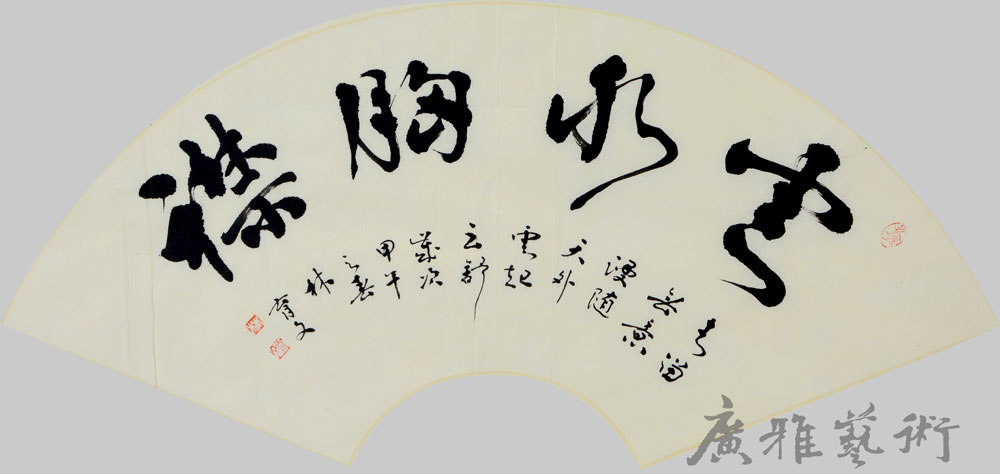 雲水胸襟
去留
無意
漫随
天外
雲起
云舒
歲次
甲午
之春
林
育文
廣雅藝術